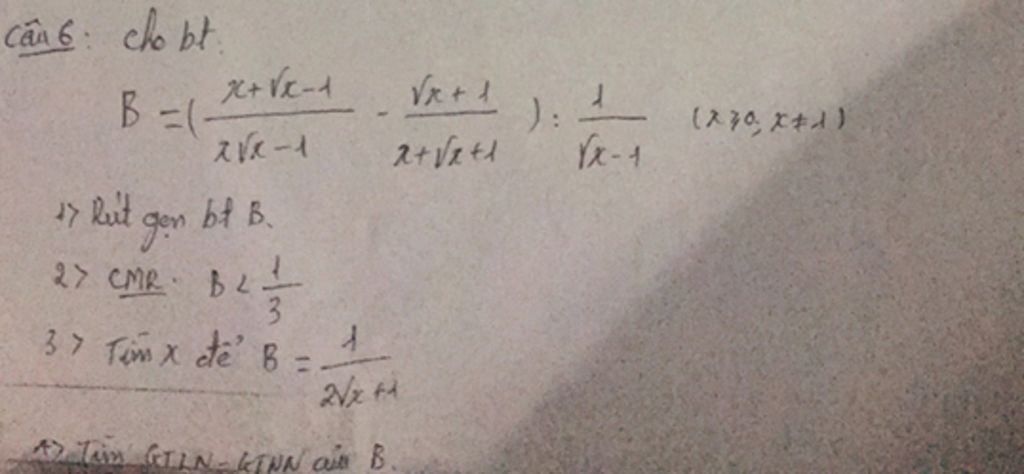 Câu 6: cho bt:
B = ( \frac{x+√x-1}{x√x-1} - \frac{√x+1}{x+√x+1} ) : \frac{1}{√x-1} (x≥0; x≠1)
1> Rút gọn bt B.
2> CMR. B < \frac{1}{3}
3> Tìm x để B = \frac{1}{2√x+1}
4> Tìm GTLN - GTNN của B.